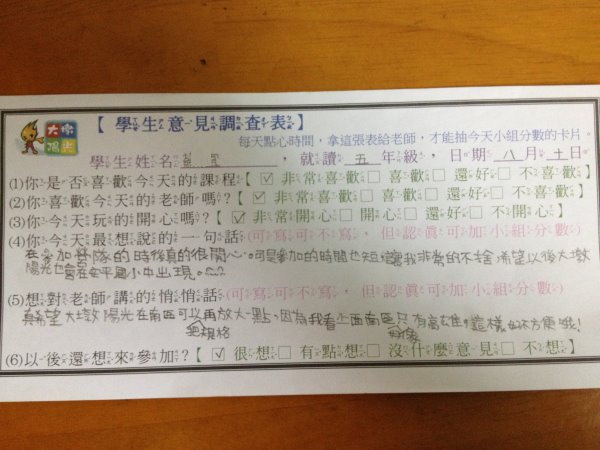 大衆陽光
【 學生意見調查表】
每天點心時間，拿這張表給老師，才能抽今天小組分數的卡片。
學生姓名 , 就讀 五 年級, 日期八月十日
(1)你是否喜歡今天的課程【☑非常喜歡□ 喜歡□ 還好□ 不喜歡】
(2)你喜歡今天的老師嗎?【☑非常喜歡□ 喜歡□ 還好□ 不喜歡】
(3)你今天玩的開心嗎?【☑非常開心□ 開心□ 還好□ 不開心】
(4)你今天最想說的一句話(可寫可不寫, 但認真可加小組分數)
在參加營隊的時後真的很開心。可是參加的時間也短,讓我非常的不捨,希望以後大墩
陽光也會在安平國小中出現。
(5)想對老師講的悄悄話(可寫可不寫, 但認真可加小組分數)
真希望大墩陽光在南區可以再放大一點,因為我看上面南區只有高雄,這樣好不方便哦!
把規格
好像
(6)以後還想來參加?【☑很想□ 有點想□ 沒什麼意見□ 不想】